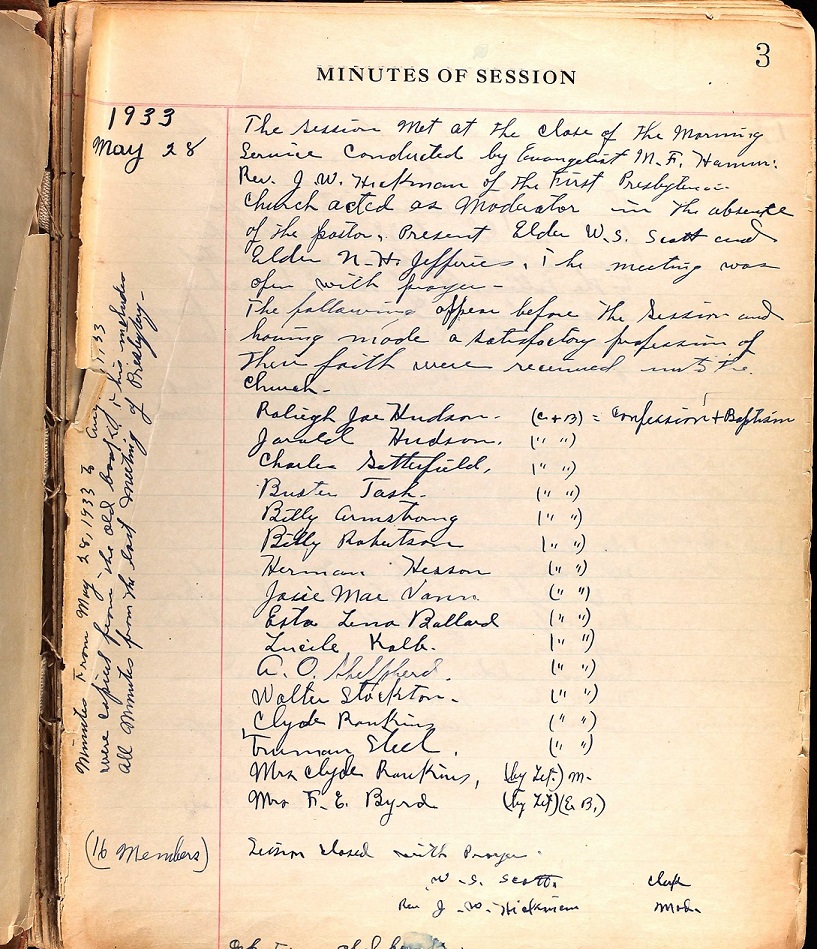 3
MINUTES OF SESSION
1933
May 28
The Session Met at the close of the Morning
Service conducted by Evangelist M. F. Hamm.
Rev. J. W. Hickman of the First Presbyterian
Church acted as Moderator in the absence
of the pastor. Present Elder W. S. Scott and
Elder N. H. Jefferies. The meeting was
open with prayer -
The following appear before the Session and
having made a satisfactory profession of
their faith were received into the
Church -
Raleigh Joe Hudson. (C + B) = Confession + Baptism
Jarold Hudson. (" ")
Charles Satterfield, (" ")
Buster Tash. (" ")
Billy Armstrong (" ")
Billy Robertson (" ")
Herman Hesson (" ")
Josie Mae Vann (" ")
Esta Lena Ballard (" ")
Lucile Kolb. (" ")
A. O. Sheffperd. (" ")
Walter Stockton. (" ")
Clyde Rankins (" ")
Truman Steel. (" ")
Mrs Clyde Rankins, (by Let.) M-
Mrs F. E. Byrd (by Let) (Ex B.)
(16 Members)
Session closed with Prayer.
W. S. Scott. Clerk
Rev J. W. Hickman Mod.
Minutes From May 28, 1933 to Aug 1933
were copied from the old book, this includes
all Minutes from the last meeting of Presbytery -